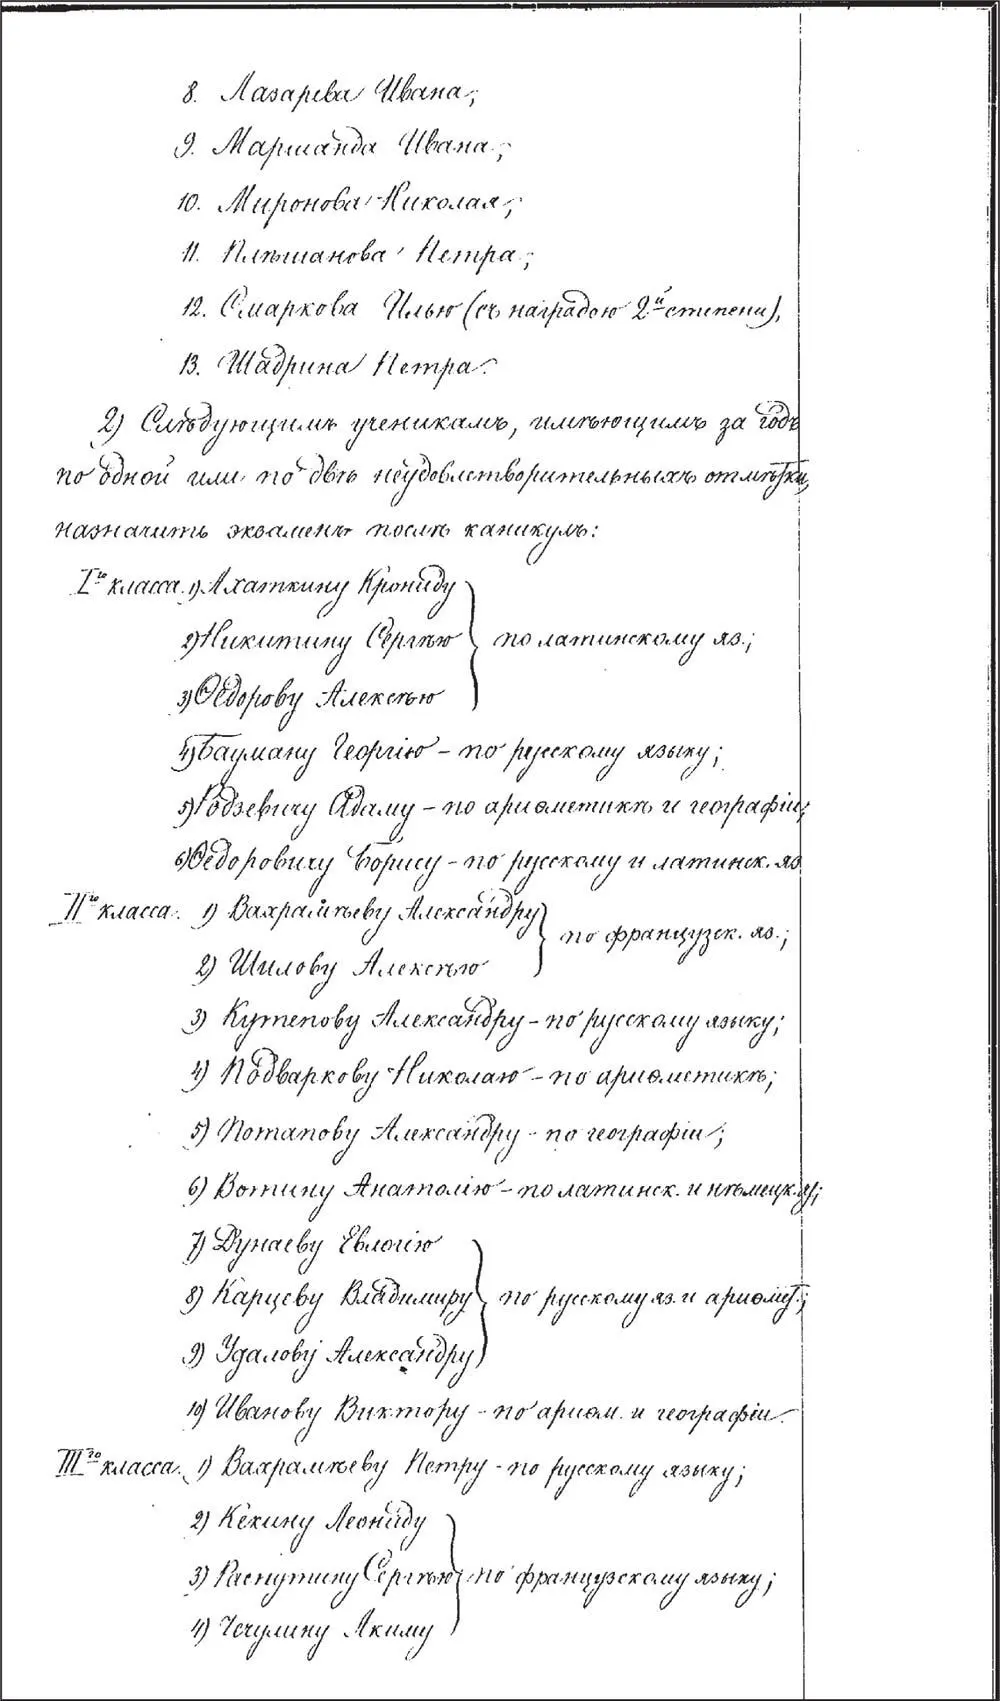 8. Лазарева Ивана;
9. Маршанда Ивана;
10. Миронова Николая;
11. Плѣшанова Петра;
12. Смаркова Илью (съ наградою 2й степени),
13. Шадрина Петра.
2) Слѣдующимъ ученикамъ, имѣющимъ за годъ
по одной или по двѣ неудовлетворительныхъ отмѣтки,
назначить экзаменъ послѣ каникулъ:
Iго класса. 1) Ахаткину Крониду
2) Никитину Сергѣю } по латинскому яз.;
3) Ѳедорову Алексѣю
4) Бауману Георгію – по русскому языку;
5) Родзевичу Адаму – по ариѳметикѣ и географіи;
6) Ѳедоровичу Борису – по русскому и латинск. яз.
IIго класса. 1) Вахрамѣеву Александру
} по французск. яз.;
2) Шилову Алексѣю
3) Кутепову Александру – по русскому языку;
4) Подваркову Николаю – по ариѳметикѣ;
5) Потапову Александру – по географіи;
6) Вотину Анатолію – по латинск. и нѣмецк. яз;
7) Дунаеву Евлогію
8) Карцеву Владимиру } по русскому яз. и ариѳмет.;
9) Удалову Александру
10) Иванову Виктору – по ариѳм. и географіи.
IIIго класса. 1) Вахрамѣеву Петру – по русскому языку;
2) Кёкину Леониду
3) Распутину Сергѣю } по французскому языку;
4) Чечулину Акиму